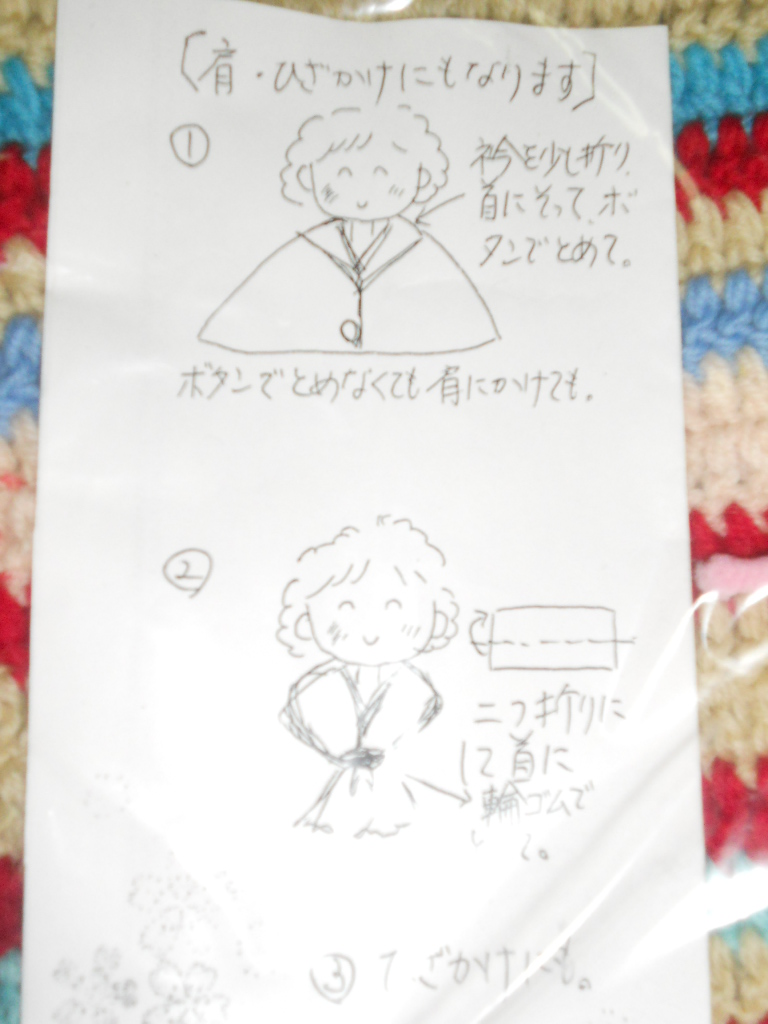 [肩・ひざかけにもなります]
①
衿を少し折り、
首にそって、ボ
タンでとめて。
ボタンでとめなくても肩にかけても。
②
二つ折りに
して首に
輪ゴムで
て。
③ ひざかけにも。